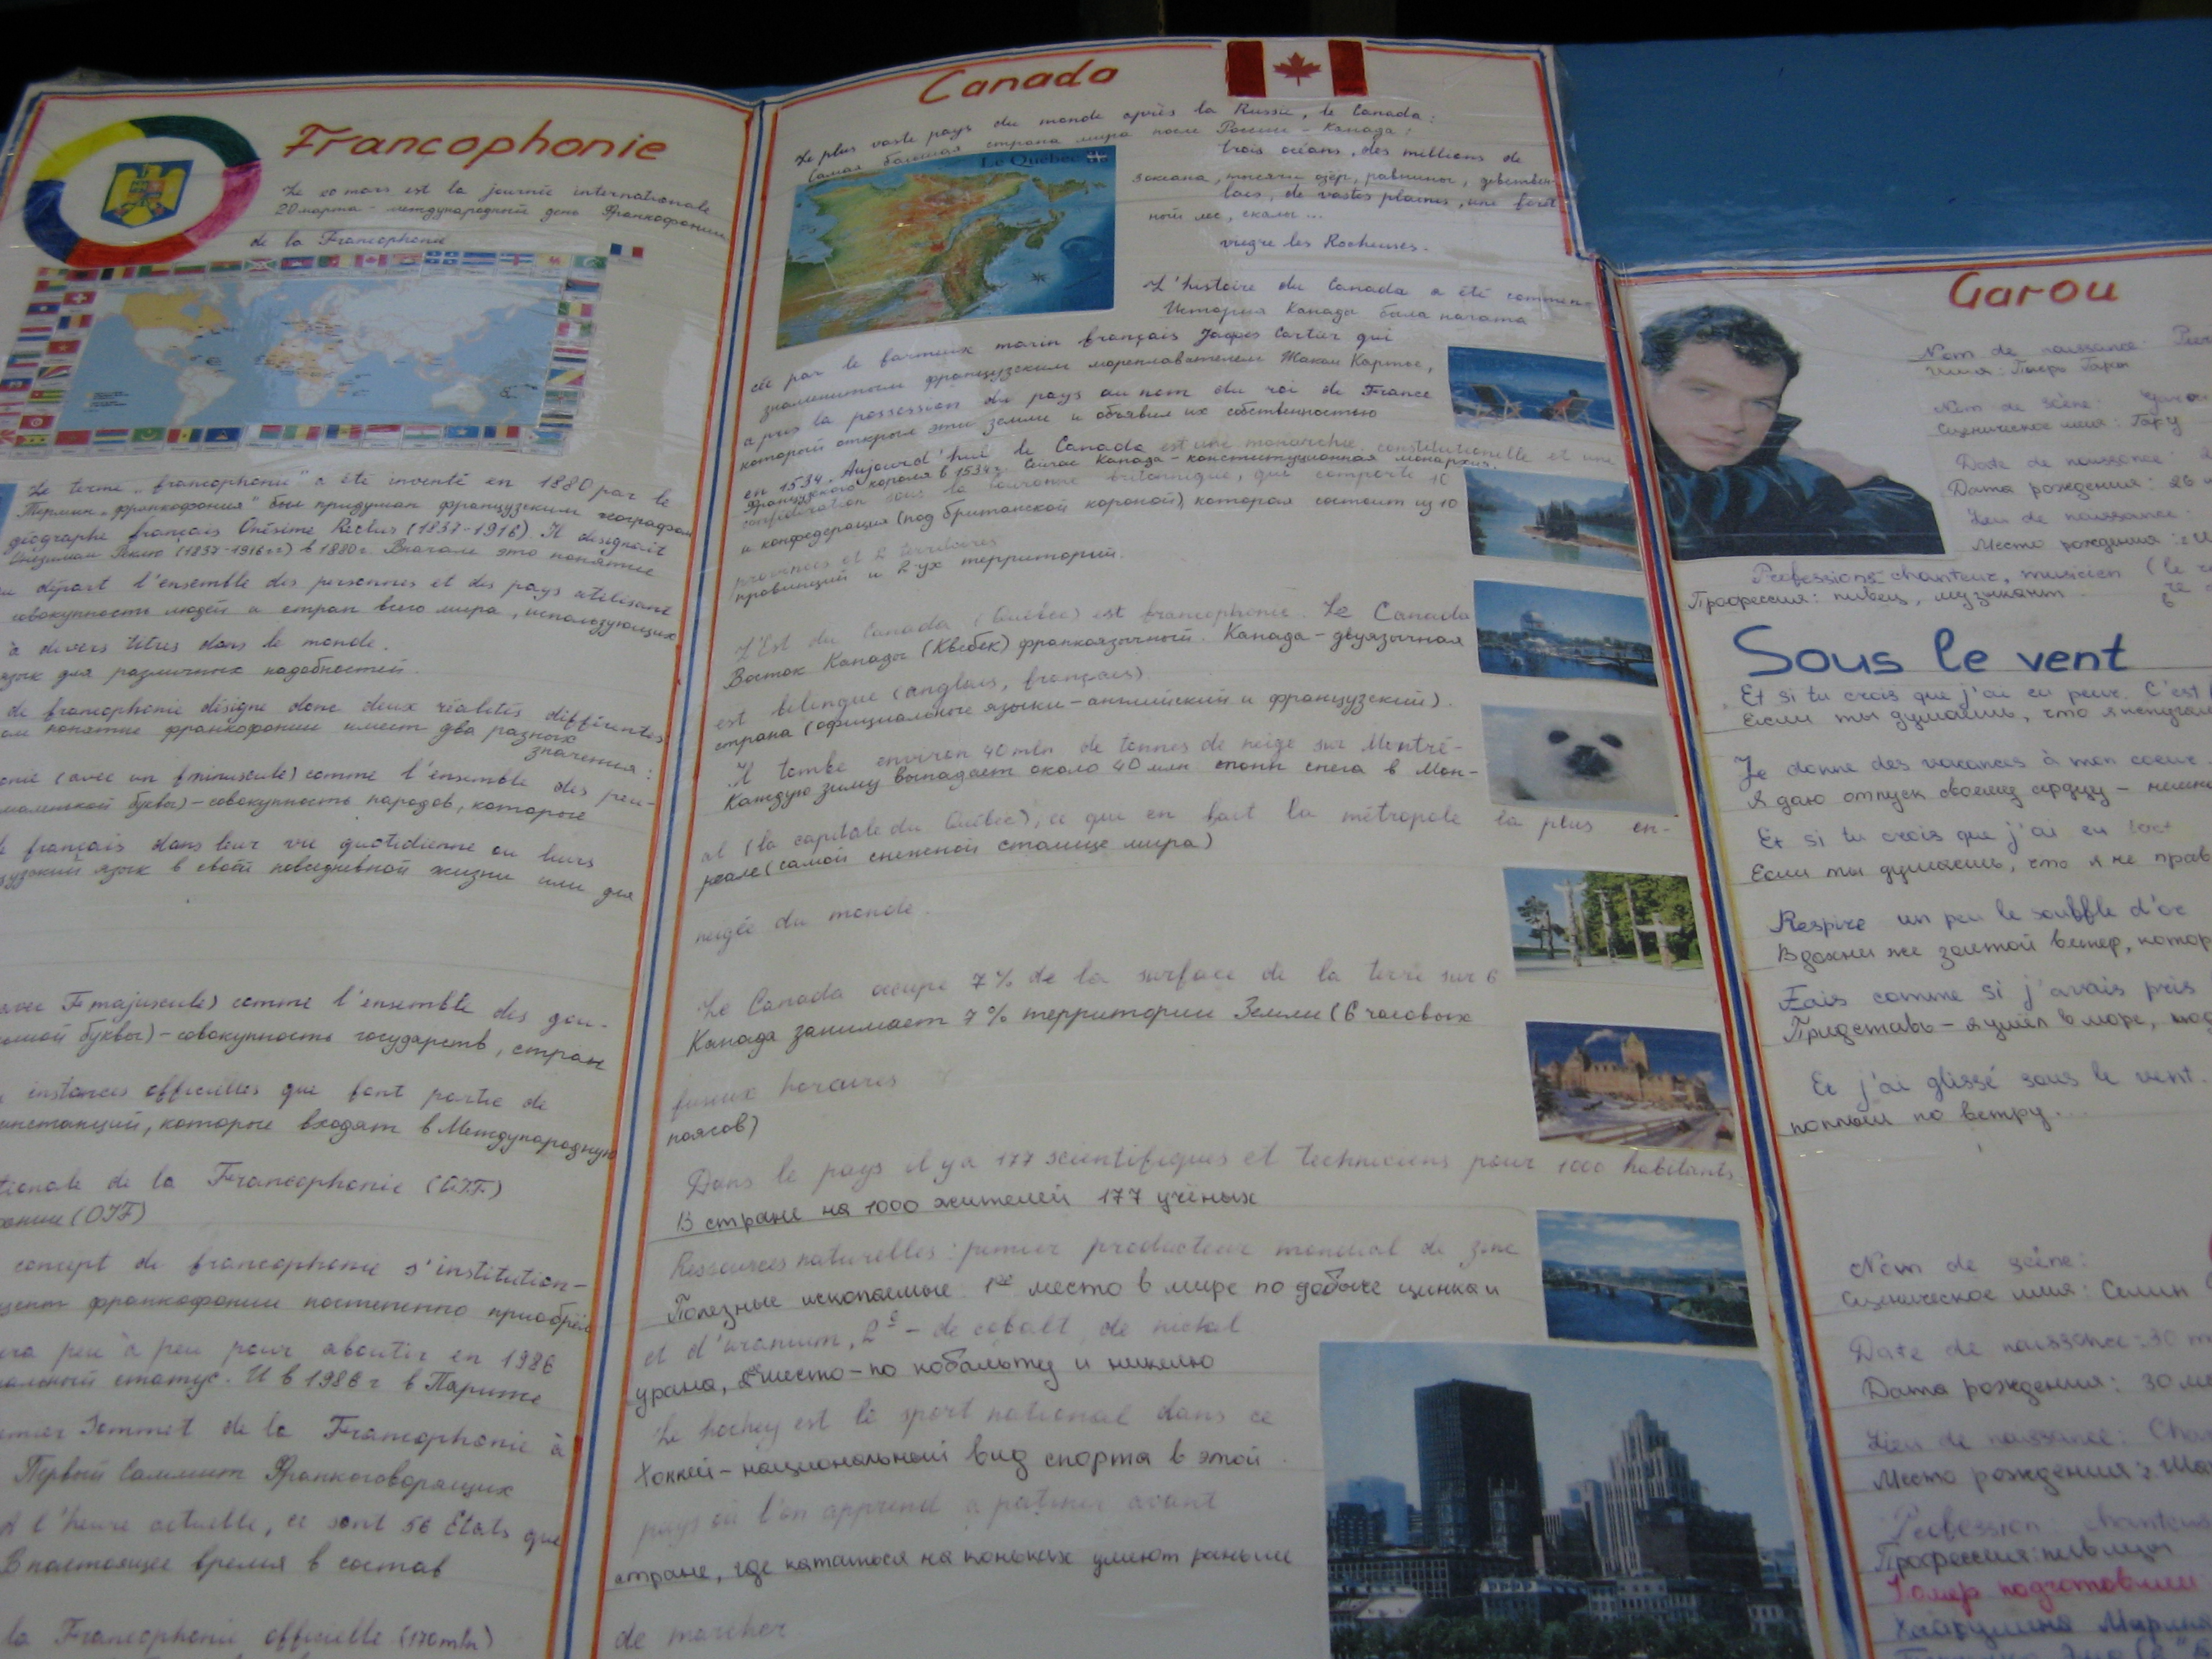 Francophonie
Le 20 mars est la journée internationale
20 марта - международный день Франкофонии
de la Francophonie
Le terme „francophonie" a été inventé en 1880 par le
Термин „франкофония" был придуман французским географом
géographe français Onésime Reclus (1837-1916). Il désignait
(1837-1916гг) в 1880г. Вначале это понятие
départ l'ensemble des personnes et des pays utilisant
совокупность людей и стран всего мира, использующих
à divers titres dans le monde.
язык для различных надобностей.
de francophonie désigne donc deux réalités différentes
понятие франкофонии имеет два разных
значения:
(avec un f minuscule) comme l'ensemble des peu-
маленькой буквы) - совокупность народов, которые
français dans leur vie quotidienne ou leurs
язык в своей повседневной жизни или для
avec F majuscule) comme l'ensemble des gou-
буквы) - совокупность государств, стран
instances officielles que font partie de
инстанций, которые входят в Международную
de la Francophonie (OIF)
(OIF)
concept de francophonie s'institution-
франкофонии постепенно приобрёл
peu à peu pour aboutir en 1986
статус. И в 1986 г в Париже
Sommet de la Francophonie à
Первый Саммит Франкоговорящих
A l'heure actuelle, ce sont 56 Etats que
В настоящее время в состав
la Francophonie officielle (170 mln)
Canada
Le plus vaste pays du monde après la Russie, le Canada:
Самая большая страна мира после России - Канада:
Le Québec
trois océans, des millions de
3 океана, тысячи озёр, равнины, девствен-
lacs, de vastes plaines, une forêt
ный лес, скалы...
vierge les Rocheuses.
L'histoire du Canada a été commen-
История Канады была начата
cée par le farmeux marin français Jaques Cartier qui
знаменитым французским мореплавателем Жаком Картье,
a pris la possession du pays au nom du roi de France
который открыл эти земли и объявил их собственностью
en 1534. Aujourd'hui le Canada est une monarchie constitutionelle et une
французского короля в 1534г. Сейчас Канада - конституционная монархия
confédération sous la couronne britennique, qui comporte 10
и конфедерация (под британской короной), которая состоит из 10
provinces et 2 territoires
провинций и 2-ух территорий.
L'Est du Canada (Québec) est francophonie. Le Canada
Восток Канады (Квебек) франкоязычный. Канада - двуязычная
est bilingue (anglais, français).
страна (официальные языки - английский и французский).
Il tombe environ 40 mln de tonnes de neige sur Montré-
Каждую зиму выпадает около 40 млн тонн снега в Мон-
al (la capitale du Québec), ce que en fait la métropole la plus en-
реале (самой снежной столице мира)
neigée du monde.
Le Canada occupe 7% de la surface de la terre sur 6
Канада занимает 7% территории Земли (6 часовых
fuseux horaires
поясов)
Dans le pays il y a 177 scientifiques et techniciens pour 1000 habitants
В стране на 1000 жителей 177 учёных
Ressources naturelles: premier producteur mondial de zinc
Полезные ископаемые 1ое место в мире по добыче цинка и
et d'uranium, 2e - de cobalt, de nickel
урана, 2ое место - по кобальту и никелю
Le hockey est le sport national dans ce
Хоккей - национальный вид спорта в этой
pays où l'on apprend a patiner avant
стране, где кататься на коньках умеют раньше
de marcher
Garou
Nom de naissance:
Имя: Пьер Гаран
Nom de scène: Garou
Сценическое имя: Гару
Date de naissance:
Дата рождения: 26
Lieu de naissance:
Место рождения:
Profession: chanteur, musicien
Профессия: певец, музыкант.
Sous le vent
Et si tu crois que j'ai eu peur. C'est
Если ты думаешь, что я испугал
Je donne des vacances à mon coeur.
Я даю отпуск своему сердцу -
Et si tu crois que j'ai eu tort
Если ты думаешь, что я не прав
Respire un peu le souffle d'or
Вдохни же золотой ветер,
Fais comme si j'avais pris
Представь - я ушёл в море,
Et j'ai glissé sous le vent.
поплыл по ветру...
Nom de scène:
Сценическое имя: Селин
Date de naissance: 30
Дата рождения: 30
Lieu de naissance:
Место рождения:
Profession: chanteuse
Профессия: певица
подготовили